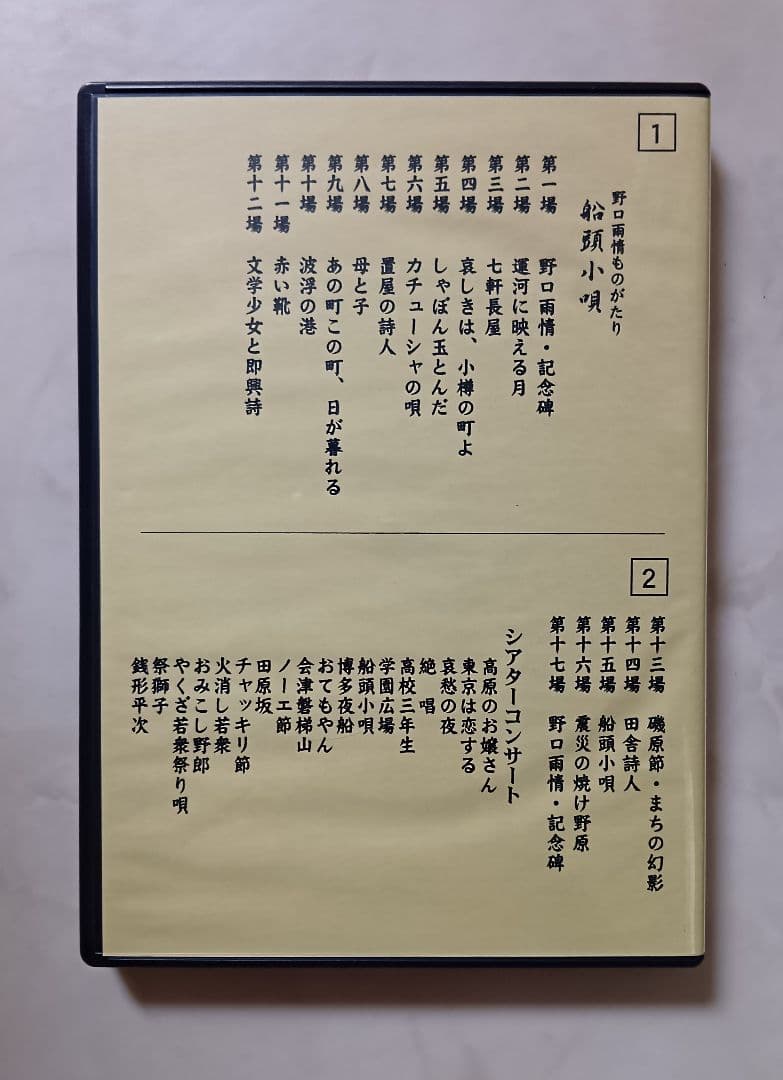 1
野口雨情ものがたり
船頭小唄
第一場 野口雨情・記念碑
第二場 運河に映える月
第三場 七軒長屋
第四場 哀しきは、小樽の町よ
第五場 しゃぼん玉とんだ
第六場 カチューシャの唄
第七場 置屋の詩人
第八場 母と子
第九場 あの町この町、日が暮れる
第十場 波浮の港
第十一場 赤い靴
第十二場 文学少女と即興詩
2
第十三場 磯原節・まちの幻影
第十四場 田舎詩人
第十五場 船頭小唄
第十六場 震災の焼け野原
第十七場 野口雨情・記念碑
シアターコンサート
高原のお嬢さん
東京は恋する
哀愁の夜
絶唱
高校三年生
学園広場
船頭小唄
博多夜船
おてもやん
会津磐梯山
ノーエ節
田原坂
チャッキリ節
火消し若衆
おみこし野郎
やくざ若衆祭り唄
祭獅子
銭形平次